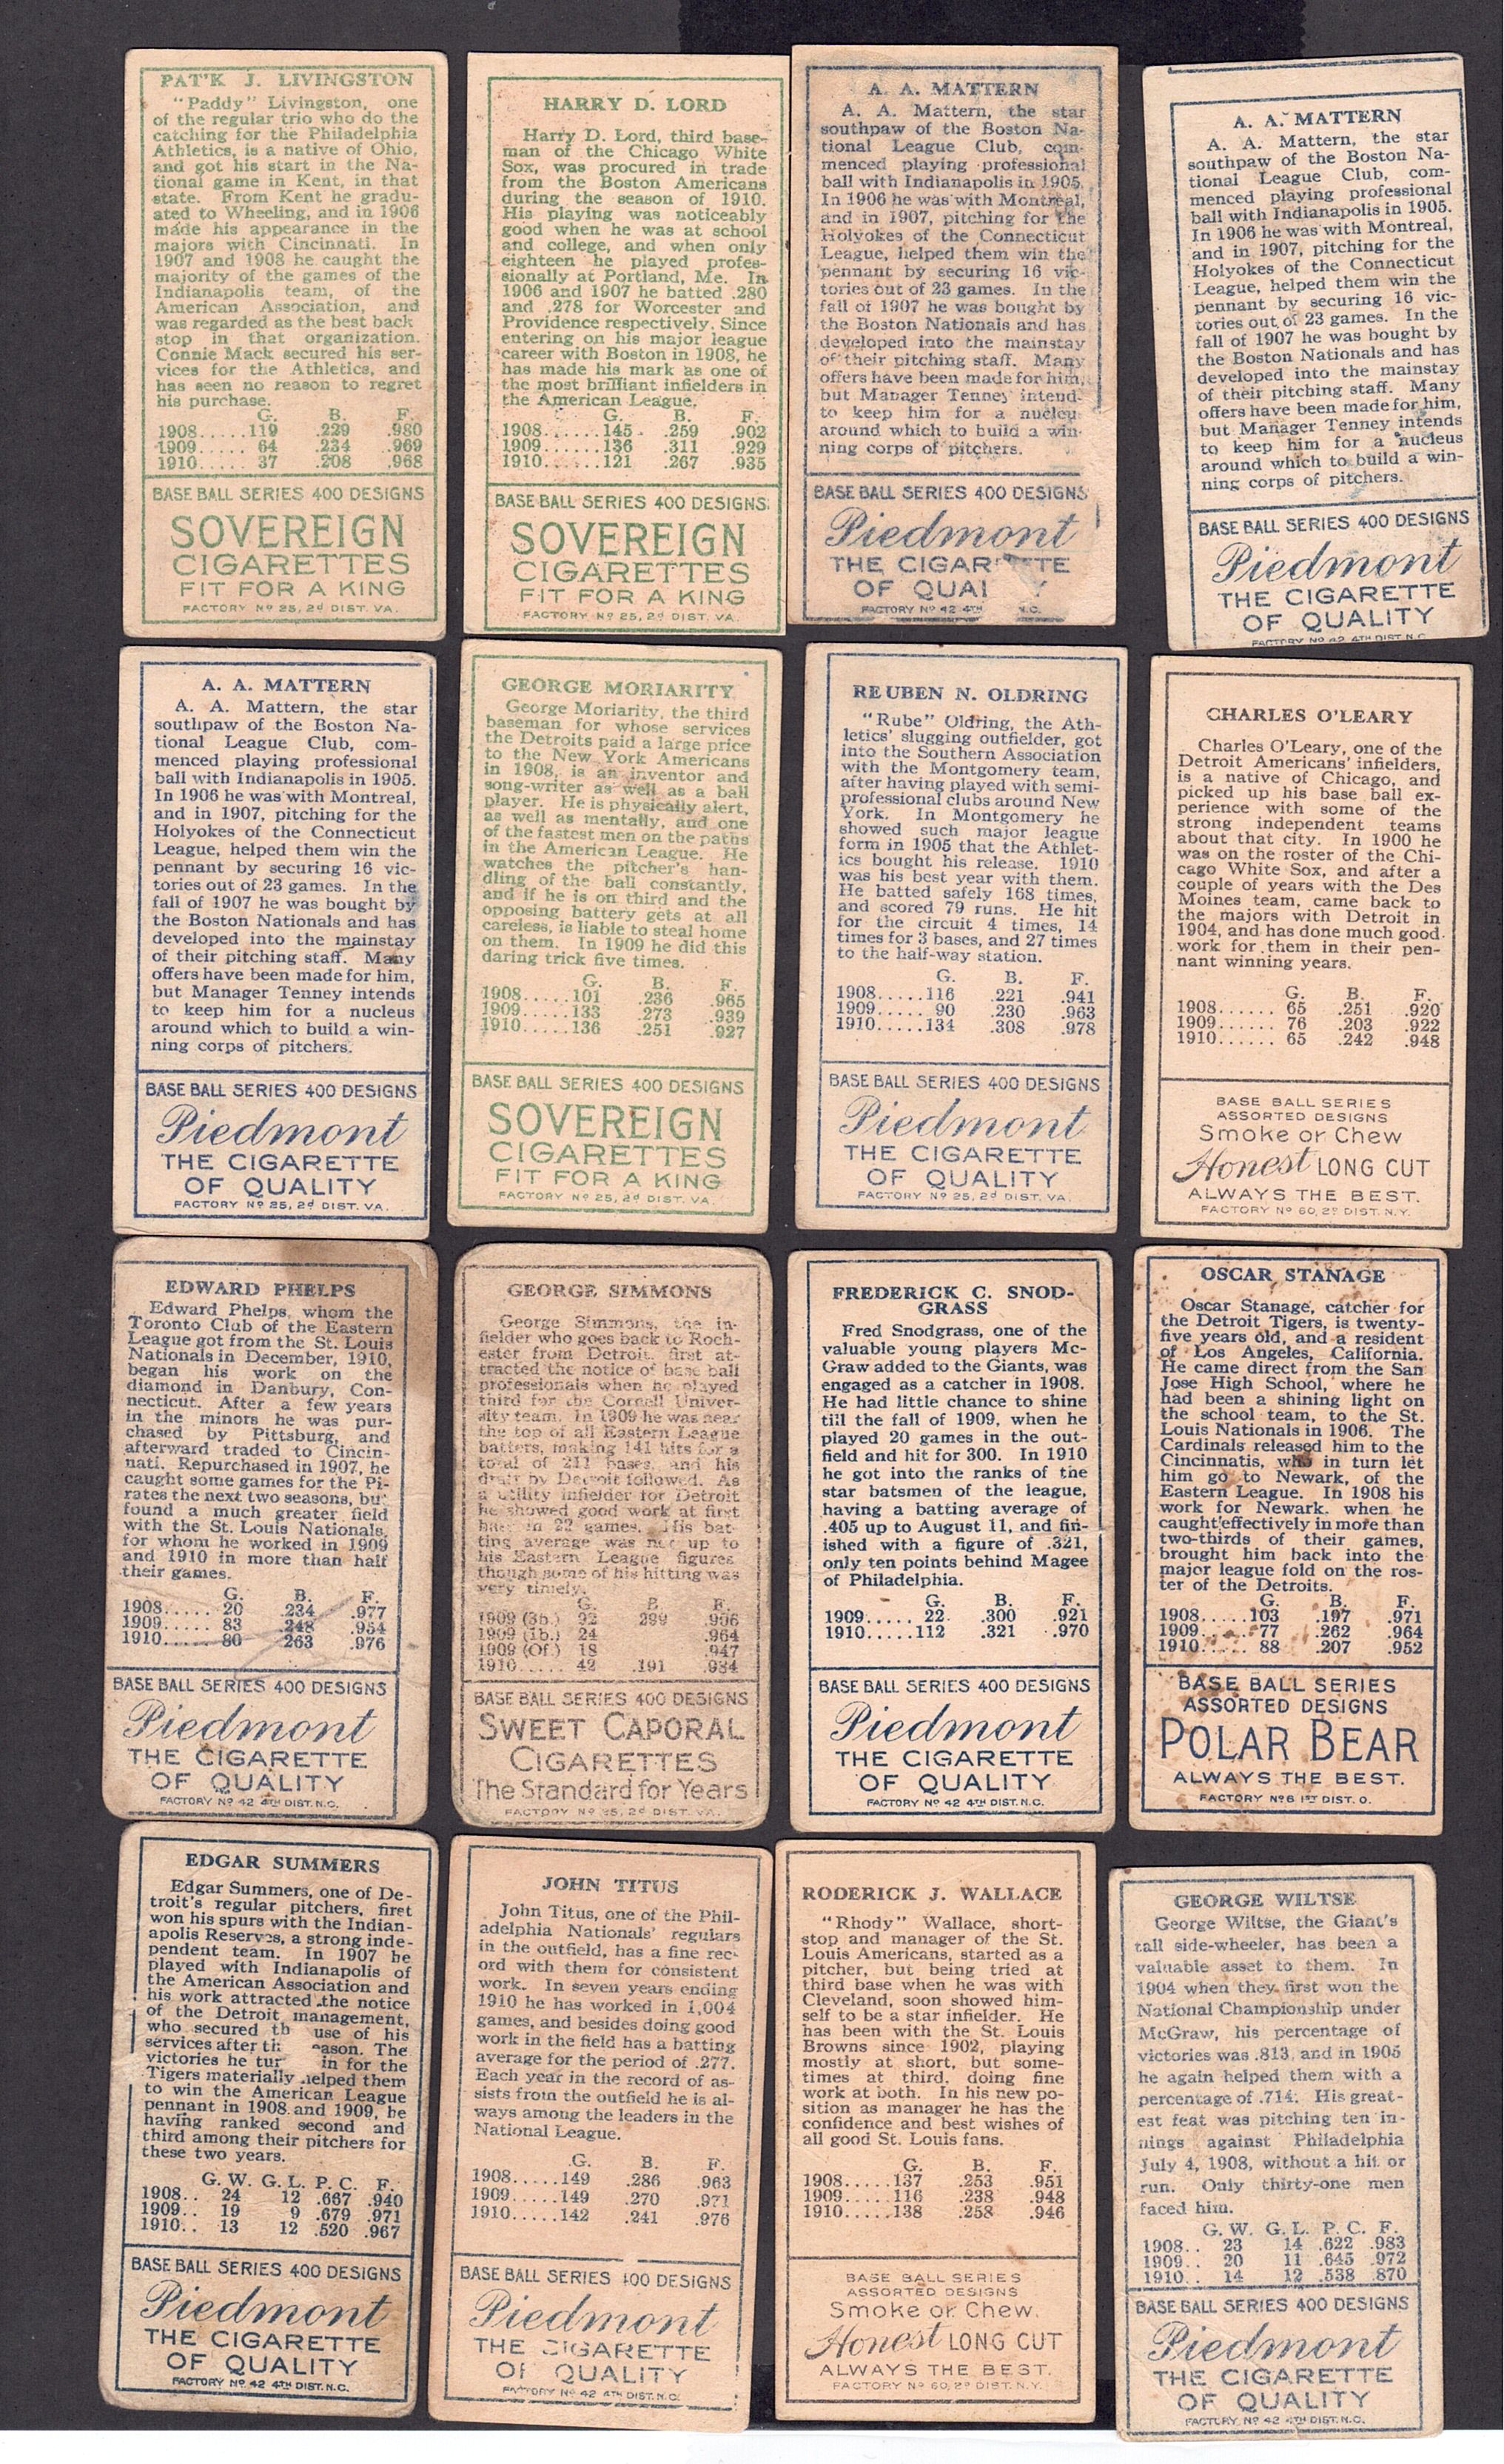 PAT'K J. LIVINGSTON
"Paddy" Livingston, one
of the regular trio who do the
catching for the Philadelphia
Athletics, is a native of Ohio,
and got his start in the Na-
tional game in Kent, in that
state. From Kent he gradu-
ated to Wheeling, and in 1906
made his appearance in the
majors with Cincinnati. In
1907 and 1908 he caught the
majority of the games of the
Indianapolis team, of the
American Association, and
was regarded as the best back
stop in that organization.
Connie Mack secured his ser-
vices for the Athletics, and
has seen no reason to regret
his purchase.
G. B. F.
1908.....119 .229 .980
1909..... 64 .234 .969
1910..... 37 .208 .968
BASE BALL SERIES 400 DESIGNS
SOVEREIGN
CIGARETTES
FIT FOR A KING
FACTORY Nº 25, 2d DIST. VA.
HARRY D. LORD
Harry D. Lord, third base-
man of the Chicago White
Sox, was procured in trade
from the Boston Americans
during the season of 1910.
His playing was noticeably
good when he was at school
and college, and when only
eighteen he played profes-
sionally at Portland, Me. In
1906 and 1907 he batted .280
and .278 for Worcester and
Providence respectively. Since
entering on his major league
career with Boston in 1908, he
has made his mark as one of
the most brilliant infielders in
the American League.
G. B. F.
1908.......145 .259 .902
1909.......136 .311 .929
1910.......121 .267 .935
BASE BALL SERIES 400 DESIGNS
SOVEREIGN
CIGARETTES
FIT FOR A KING
FACTORY Nº 25, 2d DIST. VA.
A. A. MATTERN
A. A. Mattern, the star
southpaw of the Boston Na-
tional League Club, com-
menced playing professional
ball with Indianapolis in 1905.
In 1906 he was with Montreal,
and in 1907, pitching for the
Holyokes of the Connecticut
League, helped them win the
pennant by securing 16 vic-
tories out of 23 games. In the
fall of 1907 he was bought by
the Boston Nationals and has
developed into the mainstay
of their pitching staff. Many
offers have been made for him,
but Manager Tenney intend
to keep him for a nucleu
around which to build a win-
ning corps of pitchers.
BASE BALL SERIES 400 DESIGNS
Piedmont
THE CIGAR TE
OF QUAI Y
FACTORY Nº 42 4TH N.C.
A. A. MATTERN
A. A. Mattern, the star
southpaw of the Boston Na-
tional League Club, com-
menced playing professional
ball with Indianapolis in 1905.
In 1906 he was with Montreal,
and in 1907, pitching for the
Holyokes of the Connecticut
League, helped them win the
pennant by securing 16 vic-
tories out of 23 games. In the
fall of 1907 he was bought by
the Boston Nationals and has
developed into the mainstay
of their pitching staff. Many
offers have been made for him,
but Manager Tenney intends
to keep him for a nucleus
around which to build a win-
ning corps of pitchers.
BASE BALL SERIES 400 DESIGNS
Piedmont
THE CIGARETTE
OF QUALITY
FACTORY Nº 42 4TH DIST. N.C.
A. A. MATTERN
A. A. Mattern, the star
southpaw of the Boston Na-
tional League Club, com-
menced playing professional
ball with Indianapolis in 1905.
In 1906 he was with Montreal,
and in 1907, pitching for the
Holyokes of the Connecticut
League, helped them win the
pennant by securing 16 vic-
tories out of 23 games. In the
fall of 1907 he was bought by
the Boston Nationals and has
developed into the mainstay
of their pitching staff. Many
offers have been made for him,
but Manager Tenney intends
to keep him for a nucleus
around which to build a win-
ning corps of pitchers.
BASE BALL SERIES 400 DESIGNS
Piedmont
THE CIGARETTE
OF QUALITY
FACTORY Nº 25, 2d DIST. VA.
GEORGE MORIARITY
George Moriarity, the third
baseman for whose services
the Detroits paid a large price
to the New York Americans
in 1908, is an inventor and
song-writer as well as a ball
player. He is physically alert,
as well as mentally, and one
of the fastest men on the paths
in the American League. He
watches the pitcher's han-
dling of the ball constantly,
and if he is on third and the
opposing battery gets at all
careless, is liable to steal home
on them. In 1909 he did this
daring trick five times.
G. B. F.
1908.....101 .236 .965
1909.....133 .273 .939
1910.....136 .251 .927
BASE BALL SERIES 400 DESIGNS
SOVEREIGN
CIGARETTES
FIT FOR A KING
FACTORY Nº 25, 2d DIST. VA.
REUBEN N. OLDRING
"Rube" Oldring, the Ath-
letics' slugging outfielder, got
into the Southern Association
with the Montgomery team,
after having played with semi-
professional clubs around New
York. In Montgomery he
showed such major league
form in 1905 that the Athlet-
ics bought his release. 1910
was his best year with them.
He batted safely 168 times,
and scored 79 runs. He hit
for the circuit 4 times, 14
times for 3 bases, and 27 times
to the half-way station.
G. B. F.
1908.....116 .221 .941
1909..... 90 .230 .963
1910.....134 .308 .978
BASE BALL SERIES 400 DESIGNS
Piedmont
THE CIGARETTE
OF QUALITY
FACTORY Nº 25, 2d DIST. VA.
CHARLES O'LEARY
Charles O'Leary, one of the
Detroit Americans' infielders,
is a native of Chicago, and
picked up his base ball ex-
perience with some of the
strong independent teams
about that city. In 1900 he
was on the roster of the Chi-
cago White Sox, and after a
couple of years with the Des
Moines team, came back to
the majors with Detroit in
1904, and has done much good
work for them in their pen-
nant winning years.
G. B. F.
1908...... 65 .251 .920
1909...... 76 .203 .922
1910...... 65 .242 .948
BASE BALL SERIES
ASSORTED DESIGNS
Smoke or Chew
Honest LONG CUT
ALWAYS THE BEST.
FACTORY Nº 60, 2d DIST. N.Y.
EDWARD PHELPS
Edward Phelps, whom the
Toronto Club of the Eastern
League got from the St. Louis
Nationals in December, 1910,
began his work on the
diamond in Danbury, Con-
necticut. After a few years
in the minors he was pur-
chased by Pittsburg, and
afterward traded to Cincin-
nati. Repurchased in 1907, he
caught some games for the Pi-
rates the next two seasons, but
found a much greater field
with the St. Louis Nationals,
for whom he worked in 1909
and 1910 in more than half
their games.
G. B. F.
1908..... 20 .234 .977
1909..... 83 .248 .954
1910..... 80 263 .976
BASE BALL SERIES 400 DESIGNS
Piedmont
THE CIGARETTE
OF QUALITY
FACTORY Nº 42 4TH DIST. N.C.
GEORGE SIMMONS
George Simmons, the in-
fielder who goes back to Roch-
ester from Detroit, first at-
tracted the notice of base ball
professionals when he played
third for the Cornell Univer-
sity team. In 1909 he was near
the top of all Eastern League
batters, making 141 hits for a
total of 211 bases, and his
draft by Detroit followed. As
a utility infielder for Detroit
he showed good work at first
base in 22 games. His bat-
ting average was not up to
his Eastern League figures
though some of his hitting was
very timely.
G. B. F.
1909 (3b.) 92 299 .906
1909 (1b.) 24 .964
1909 (Of.) 18 .947
1910..... 42 .191 .984
BASE BALL SERIES 400 DESIGNS
SWEET CAPORAL
CIGARETTES
The Standard for Years
FACTORY Nº 25, 2d DIST. VA.
FREDERICK C. SNOD-
GRASS
Fred Snodgrass, one of the
valuable young players Mc-
Graw added to the Giants, was
engaged as a catcher in 1908.
He had little chance to shine
till the fall of 1909, when he
played 20 games in the out-
field and hit for 300. In 1910
he got into the ranks of the
star batsmen of the league,
having a batting average of
.405 up to August 11, and fin-
ished with a figure of .321,
only ten points behind Magee
of Philadelphia.
G. B. F.
1909..... 22 .300 .921
1910.....112 .321 .970
BASE BALL SERIES 400 DESIGNS
Piedmont
THE CIGARETTE
OF QUALITY
FACTORY Nº 42 4TH DIST. N.C.
OSCAR STANAGE
Oscar Stanage, catcher for
the Detroit Tigers, is twenty-
five years old, and a resident
of Los Angeles, California.
He came direct from the San
Jose High School, where he
had been a shining light on
the school team, to the St.
Louis Nationals in 1906. The
Cardinals released him to the
Cincinnatis, who in turn let
him go to Newark, of the
Eastern League. In 1908 his
work for Newark, when he
caught effectively in more than
two-thirds of their games,
brought him back into the
major league fold on the ros-
ter of the Detroits.
G. B. F.
1908.....103 .197 .971
1909..... 77 .262 .964
1910..... 88 .207 .952
BASE BALL SERIES
ASSORTED DESIGNS
POLAR BEAR
ALWAYS THE BEST.
FACTORY Nº 6 1ST DIST. O.
EDGAR SUMMERS
Edgar Summers, one of De-
troit's regular pitchers, first
won his spurs with the Indian-
apolis Reserves, a strong inde-
pendent team. In 1907 he
played with Indianapolis of
the American Association and
his work attracted the notice
of the Detroit management,
who secured th use of his
services after th eason. The
victories he tur in for the
Tigers materially helped them
to win the American League
pennant in 1908 and 1909, he
having ranked second and
third among their pitchers for
these two years.
G. W. G. L. P. C. F.
1908.. 24 12 .667 .940
1909.. 19 9 .679 .971
1910.. 13 12 .520 .967
BASE BALL SERIES 400 DESIGNS
Piedmont
THE CIGARETTE
OF QUALITY
FACTORY Nº 42 4TH DIST. N.C.
JOHN TITUS
John Titus, one of the Phil-
adelphia Nationals' regulars
in the outfield, has a fine rec-
ord with them for consistent
work. In seven years ending
1910 he has worked in 1,004
games, and besides doing good
work in the field has a batting
average for the period of .277.
Each year in the record of as-
sists from the outfield he is al-
ways among the leaders in the
National League.
G. B. F.
1908.....149 .286 .963
1909.....149 .270 .971
1910.....142 .241 .976
BASE BALL SERIES 400 DESIGNS
Piedmont
THE CIGARETTE
OF QUALITY
FACTORY Nº 42 4TH DIST. N.C.
RODERICK J. WALLACE
"Rhody" Wallace, short-
stop and manager of the St.
Louis Americans, started as a
pitcher, but being tried at
third base when he was with
Cleveland, soon showed him-
self to be a star infielder. He
has been with the St. Louis
Browns since 1902, playing
mostly at short, but some-
times at third, doing fine
work at both. In his new po-
sition as manager he has the
confidence and best wishes of
all good St. Louis fans.
G. B. F.
1908.....137 .253 .951
1909.....116 .238 .948
1910.....138 .258 .946
BASE BALL SERIES
ASSORTED DESIGNS
Smoke or Chew
Honest LONG CUT
ALWAYS THE BEST.
FACTORY Nº 60, 2d DIST. N.Y.
GEORGE WILTSE
George Wiltse, the Giant's
tall side-wheeler, has been a
valuable asset to them. In
1904 when they first won the
National Championship under
McGraw, his percentage of
victories was .813, and in 1905
he again helped them with a
percentage of .714. His great-
est feat was pitching ten in-
nings against Philadelphia
July 4, 1908, without a hit or
run. Only thirty-one men
faced him.
G. W. G. L. P. C. F.
1908.. 23 14 .622 .983
1909.. 20 11 .645 .972
1910.. 14 12 .538 .870
BASE BALL SERIES 400 DESIGNS
Piedmont
THE CIGARETTE
OF QUALITY
FACTORY Nº 42 4TH DIST. N.C.